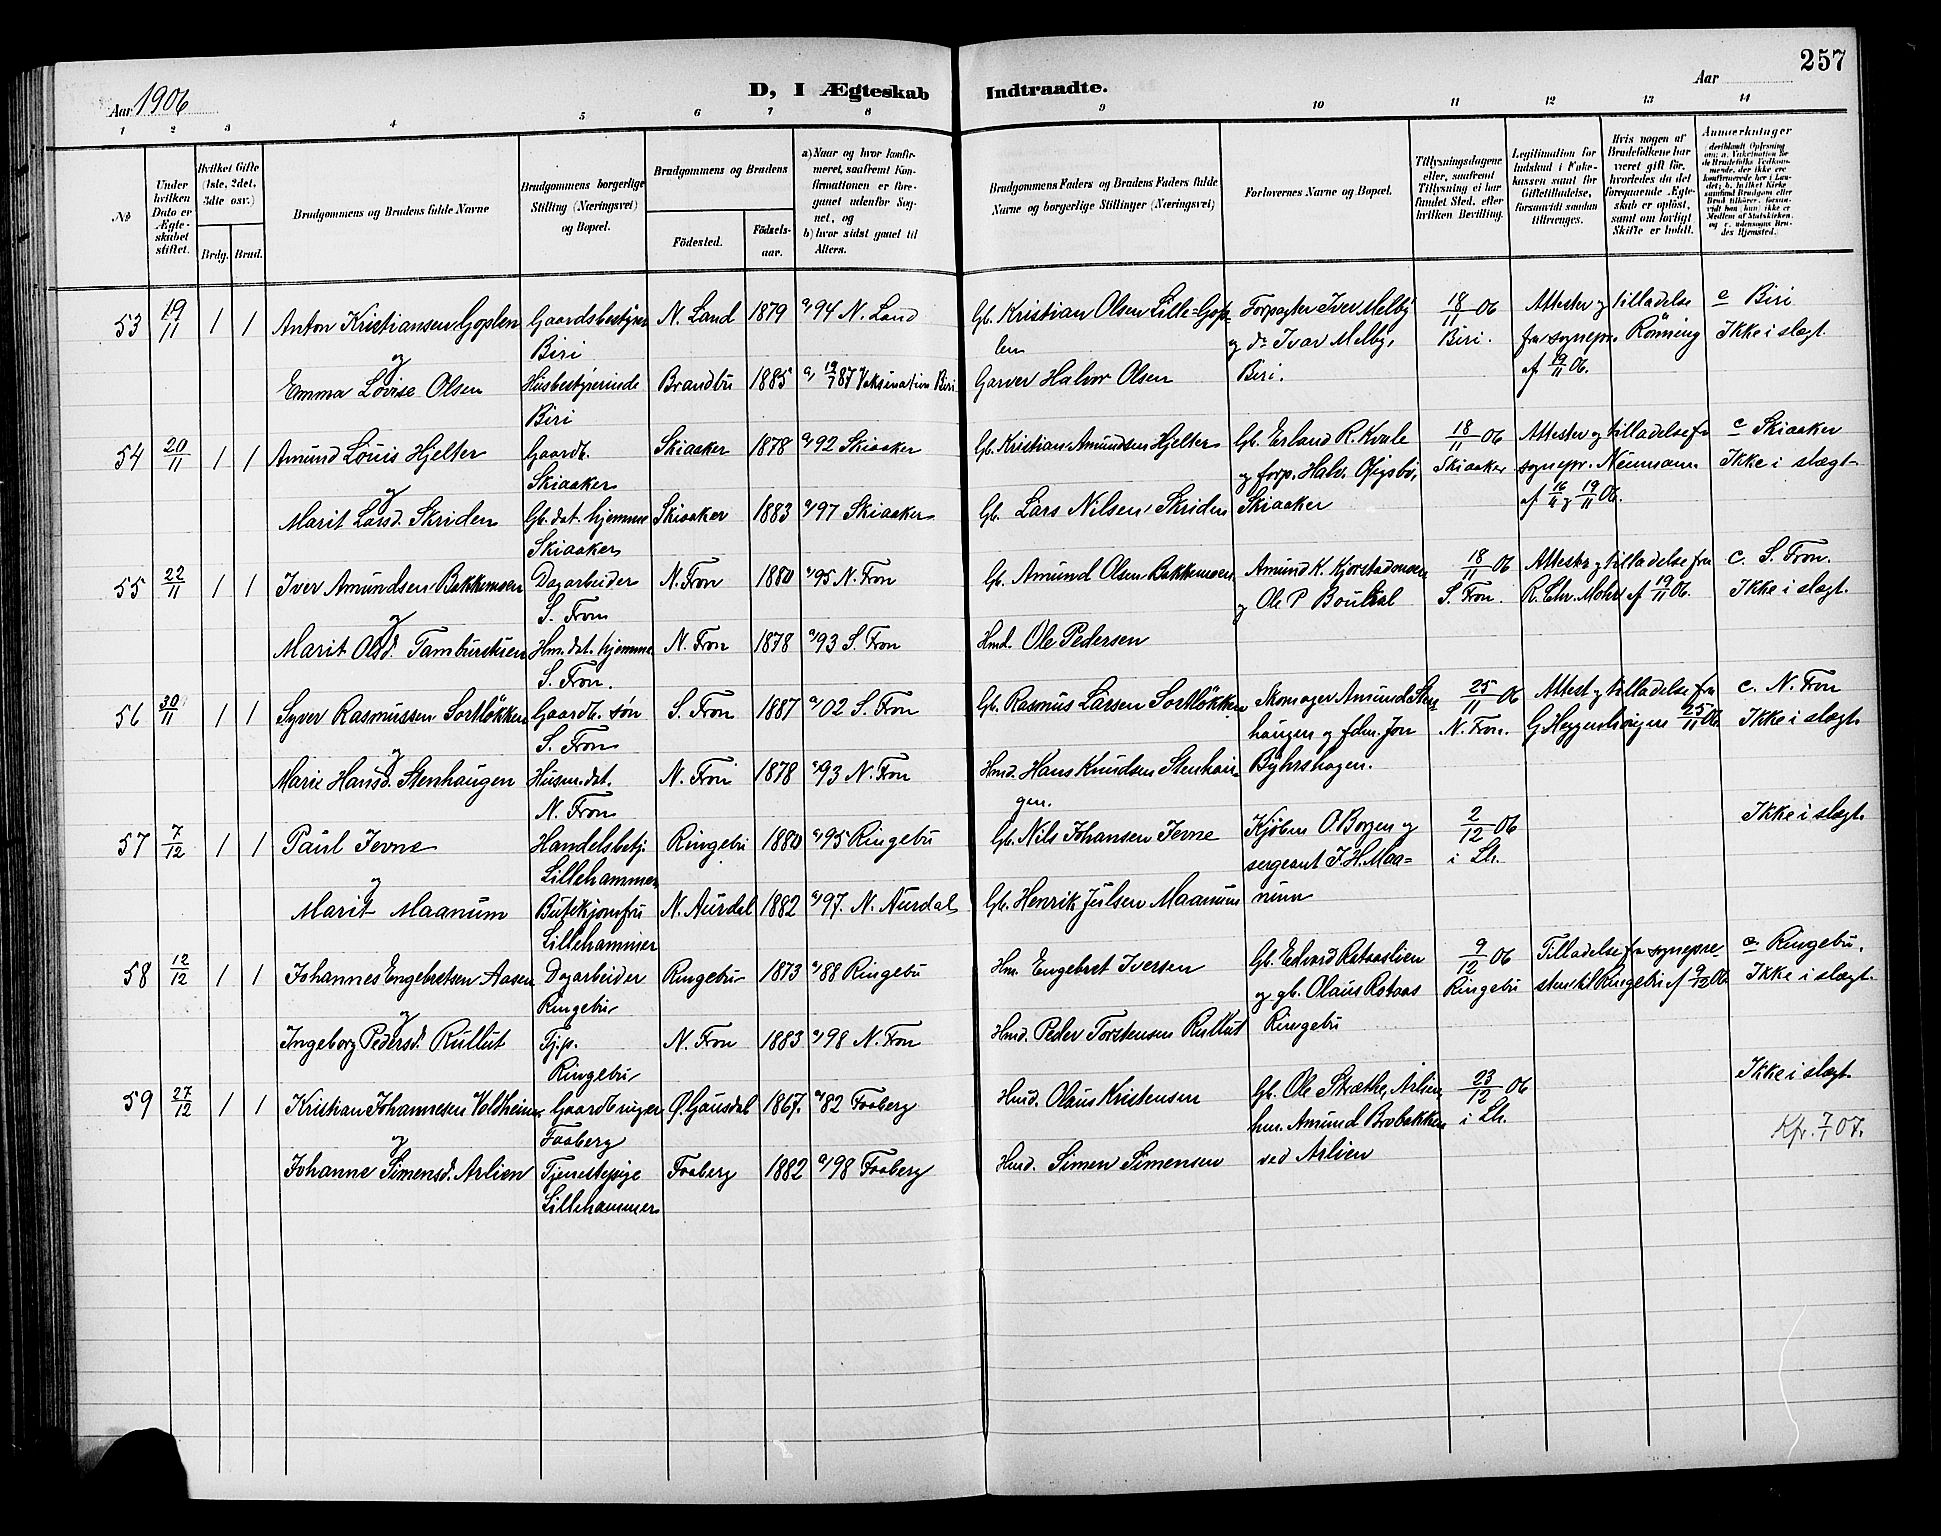 257
Aar 1906
D, I Ægteskab Indtraadte.
Aar
1 2 3 4 5 6 7 8 9 10 11 12 13 14
No
Under hvilken Dato er Ægteskabet stiftet.
Hvilket Gifte (1ste, 2det, 3die osv.)
Brdg. Brud.
Brudgommens og Brudens fulde Navne
Brudgommens borgerlige Stilling (Næringsvei) og Bopæl.
Brudgommens og Brudens
Födested.
Födsels-aar.
a) Naar og hvor konfirmeret, saafremt Konfirmationen er foregaaet udenfor Sognet, og
b) hvor sidst gaaet til Alters.
Brudgommens Faders og Brudens Faders fulde Navne og borgerlige Stillinger (Næringsvei)
Forlovernes Navne og Bopæl.
Tillysningsdagene eller, saafremt Tillysning ei har fundet Sted, efter hvilken Bevilling.
Legitimation for Indskud i Enkekassen samt for Giftetilladelse, forsaavidt saadan tiltrænges.
Hvis nogen af Brudefolkene har været gift för, hvorledes da det foregaaende Ægteskab er oplöst, samt om lovligt Skifte er holdt.
Anmærkninger
53 19/11 1 1 Anton Kristiansen Goplen Gaardsbestyrer N. Land 1879 a) 94 N. Land Gb. Kristian Olsen Lille-Gop- Forpagter Iver Melby 18/11 06 Attester og tilladelse c Biri
og Biri len og do Ivar Melby, Biri. fra sognepr. Rönning Ikke i slægt
Emma Lovise Olsen Husbestyrerinde Brandbu 1885 a) 19/7 87 Vaksination Biri Garver Halvor Olsen Biri. af 19/11 06.
Biri
54 20/11 1 1 Amund Louis Hjelter Gaardb. Skiaaker 1878 a) 92 Skiaaker Gb. Kristian Amundsen Hjelter Gb. Erland R. Kvale 18/11 06 Attester og tilladelse fr c Skiaaker
og Skiaaker og forp. Halv. Skiaaker sognepr. Neumann Ikke i slægt
Marit Larsd. Skriden Gb. dat. hjemme Skiaaker 1883 a) 97 Skiaaker Gb. Lars Nilsen Skriden Skiaaker af 16/11 og 19/11 06.
Skiaaker
55 22/11 1 1 Iver Amundsen Bakkemoen Dagarbeider N. Fron 1880 a) 95 N. Fron Gb. Amund Olsen Bakkemoen Amund K. Kjorstadmoen 18/11 06 Attester og tilladelse fra c. S. Fron.
og S. Fron og Ole P S. Fron. R. Chr. Mohr af 19/11 06. Ikke i slægt.
Marit Olsd. Tamburstuen Hm. dat. hjemme N. Fron 1878 a) 93 S. Fron Hmd. Ole Pedersen
S. Fron.
56 30/11 1 1 Syver Rasmussen Sorlökken Gaardb. søn S. Fron 1887 a) 02 S. Fron Gb. Rasmus Larsen Sorlökken Skomager Amund Sten- 25/11 06 Attest og tilladelse fra c. N. Fron
og S. Fron haugen og fdm. Jon N. Fron. G. 25/11 06. Ikke i slægt
Marie Hansd. Stenhaugen Husm. dat. N. Fron 1878 a) 93 N. Fron Hmd. Hans Knudsen Stenhau- Byhrshagen.
N. Fron gen.
57 7/12 1 1 Paul Jevne Handelsbetj. Ringebu 1880 a) 95 Ringebu Gb. Nils Johansen Jevne Kjøbm O. Borgen og 2/12 06 Ikke i slægt
og Lillehammer sergeant J. H. Maa- i Lh.
Marit Maanum Butikjomfru N. Aurdal 1882 a) 97. N. Aurdal Gb. Henrik Julsen Maanum num
Lillehammer
58 12/12 1 1 Johannes Engebretsen Aasen Dagarbeider Ringebu 1873 a) 88 Ringebu Hm. Engebret Iversen Gb. Edvard Rataaslien 9/12 06 Tilladelse fra sognepre- c. Ringebu.
og Ringebu og gb. Olaus Rataas Ringebu sten til Ringebu af 9/12 06 Ikke i slægt.
Ingeborg Pedersd. Rullut Tj.p. N. Fron 1883 a) 98 N. Fron Hmd. Peder Torstensen Rullut Ringebu
Ringebu
59 27/12 1 1 Kristian Johannesen Voldheim Gaardbruger Ø. Gausdal 1867. a) 82 Faaberg Hmd. Olaus Kristensen Gb. Ole Stræthe, Arlien 23/12 06 Ikke i slægt
og Faaberg hm. Amund Brobakken i Lh. Kfr. 7/1 07.
Johanne Simensd. Arlien Tjenestepige Faaberg 1882 a) 98 Faaberg Hmd. Simen Simensen ved Arlien
Lillehammer